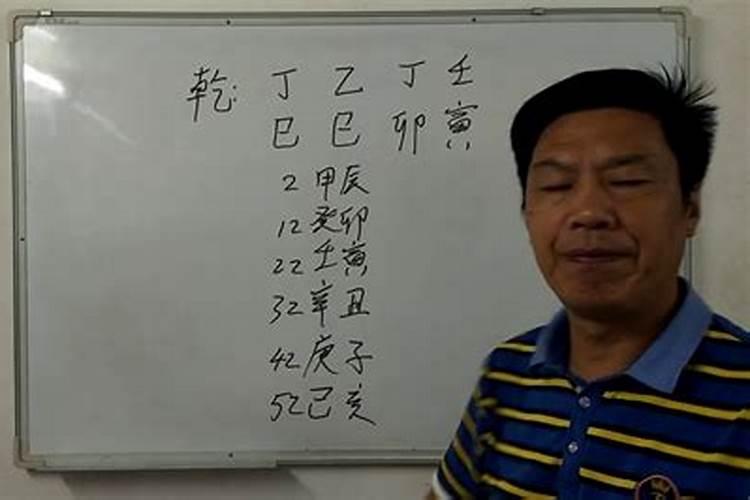 乾: 丁 乙 丁 壬
巳 巳 卯 寅
2 甲辰
12 癸卯
22 壬寅
32 辛丑
42 庚子
52 己亥